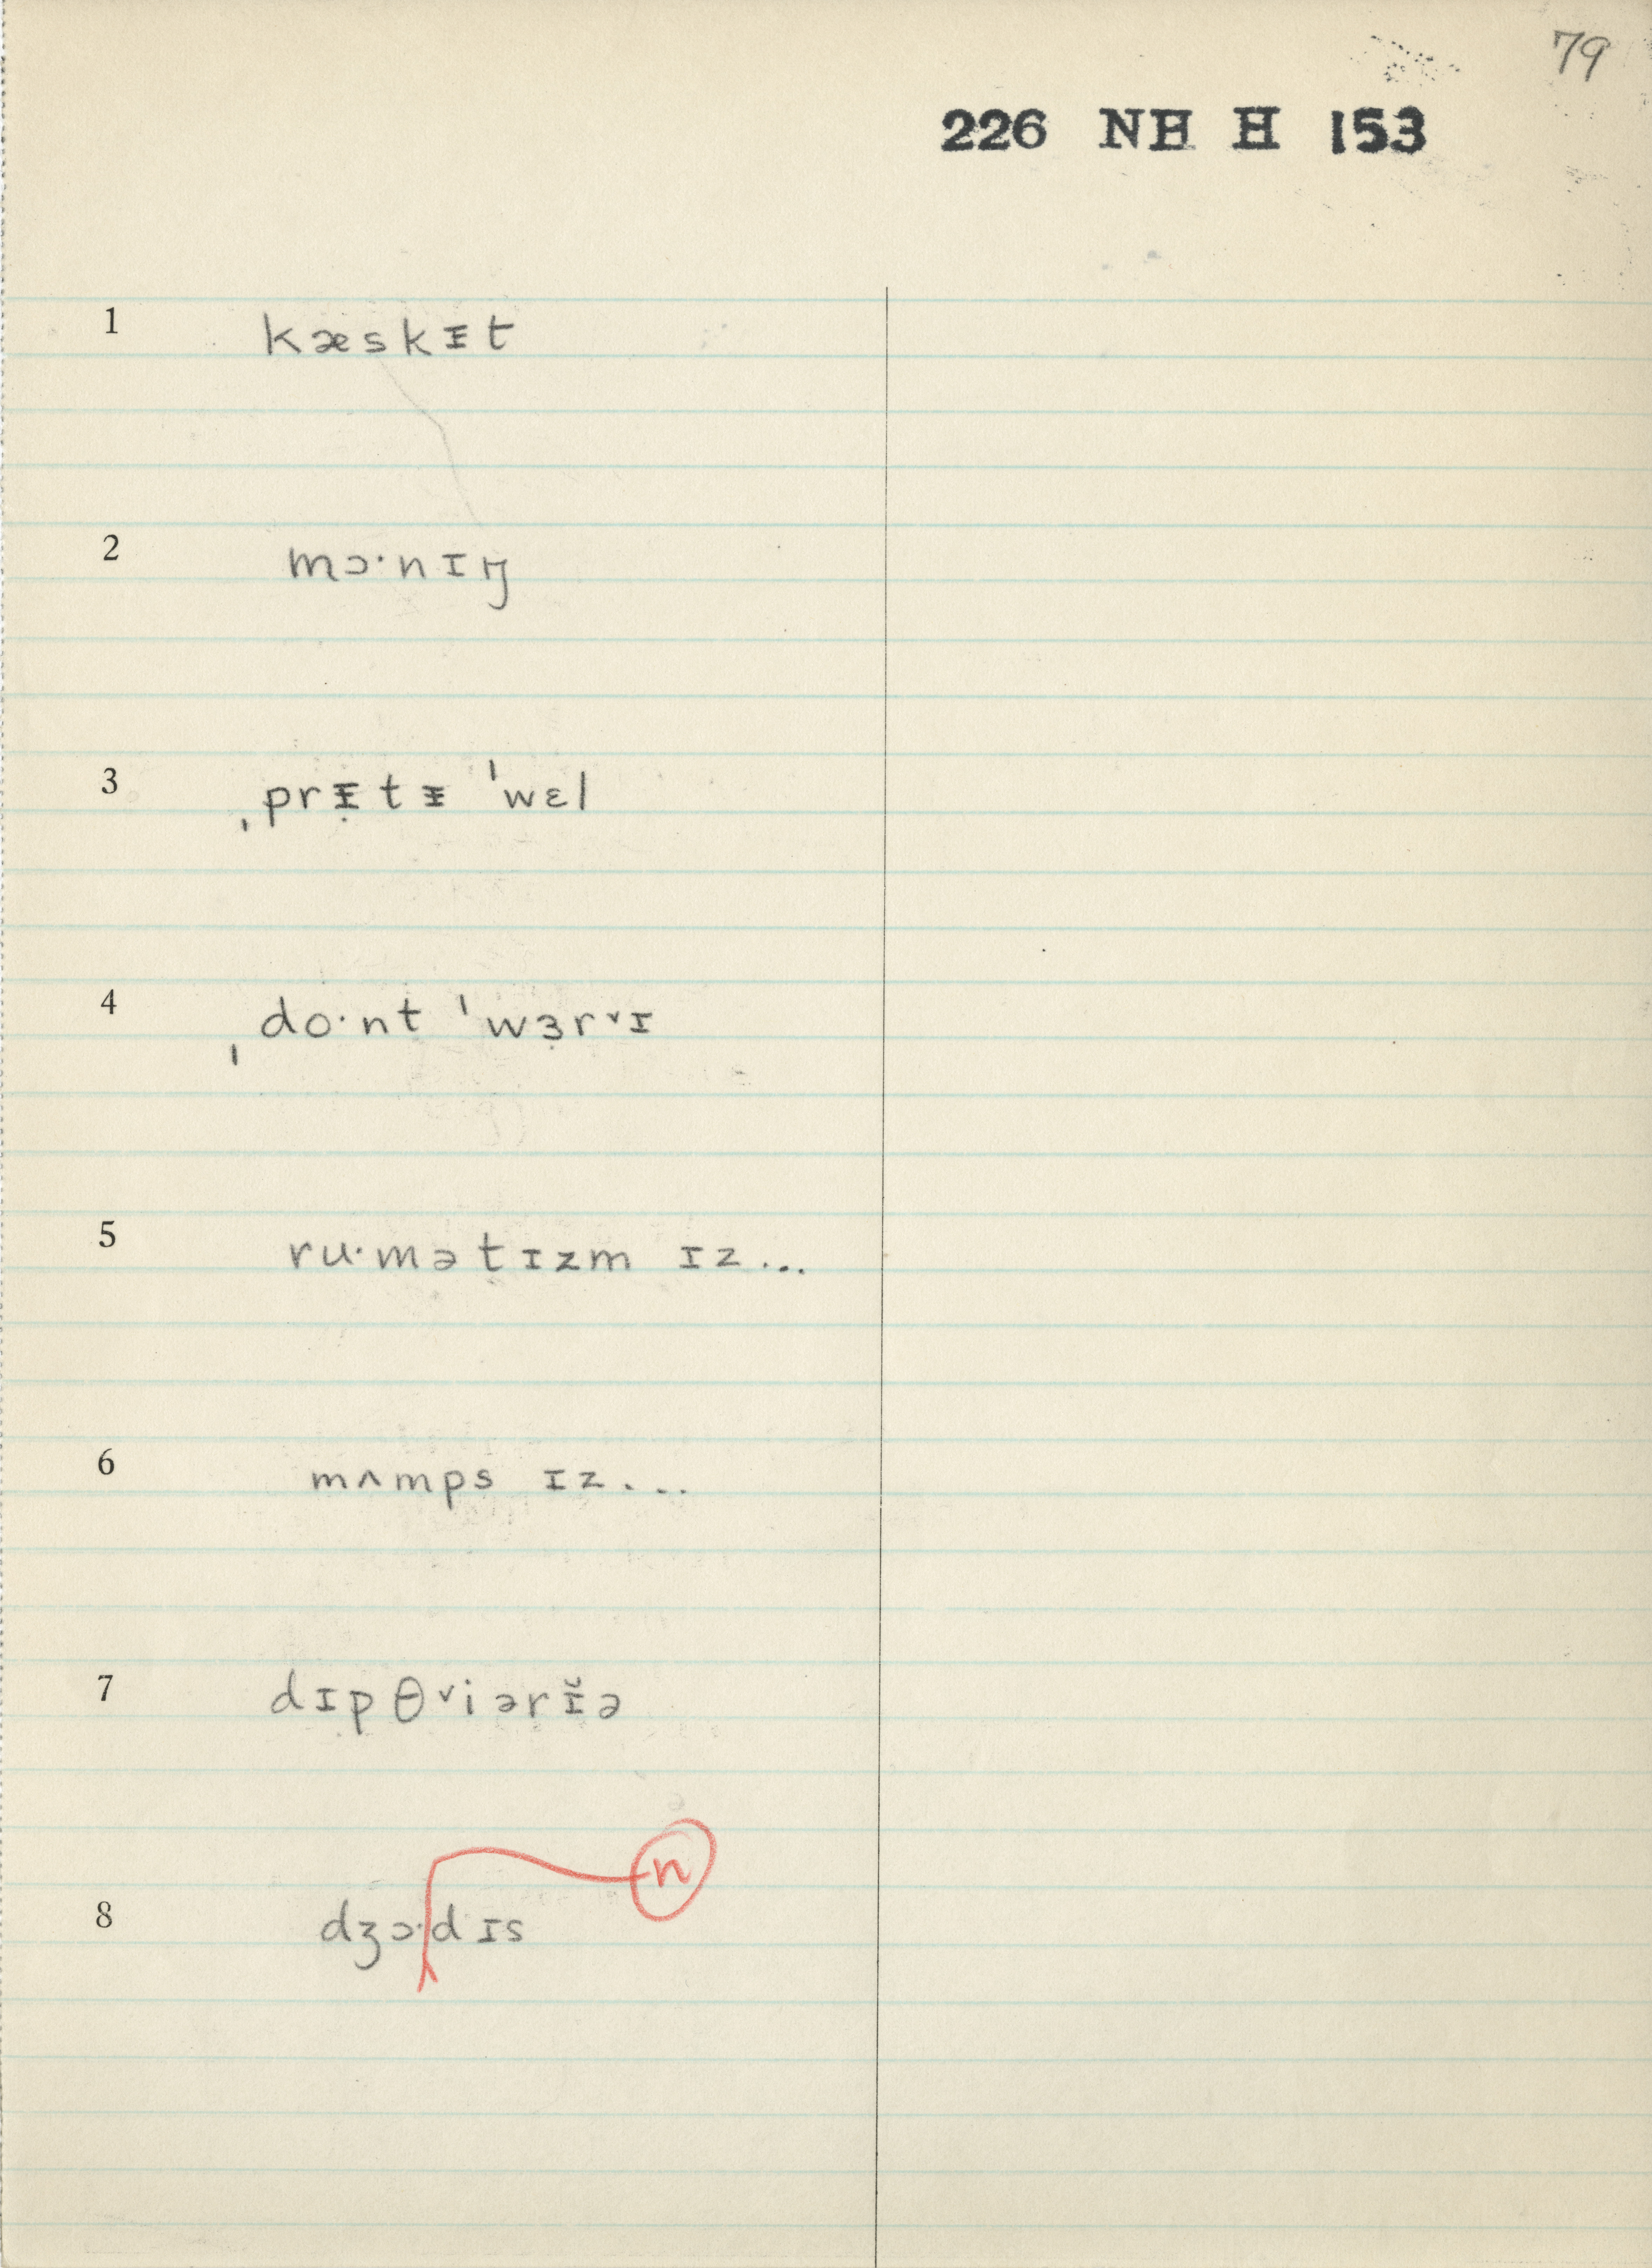 79
226 NH H 153
1 kæskᵻt
2 mɔ·nɪŋ
3 ˌprᵻ̣tᵻ ˈwɛl
4 ˌdo·nt ˈwɜ̣rᵛɪ
5 ru·mətɪzm ɪz...
6 mʌmps ɪz...
7 dɪpθᵛiərɪ̆ə
n
8 dʒɔ·dɪs